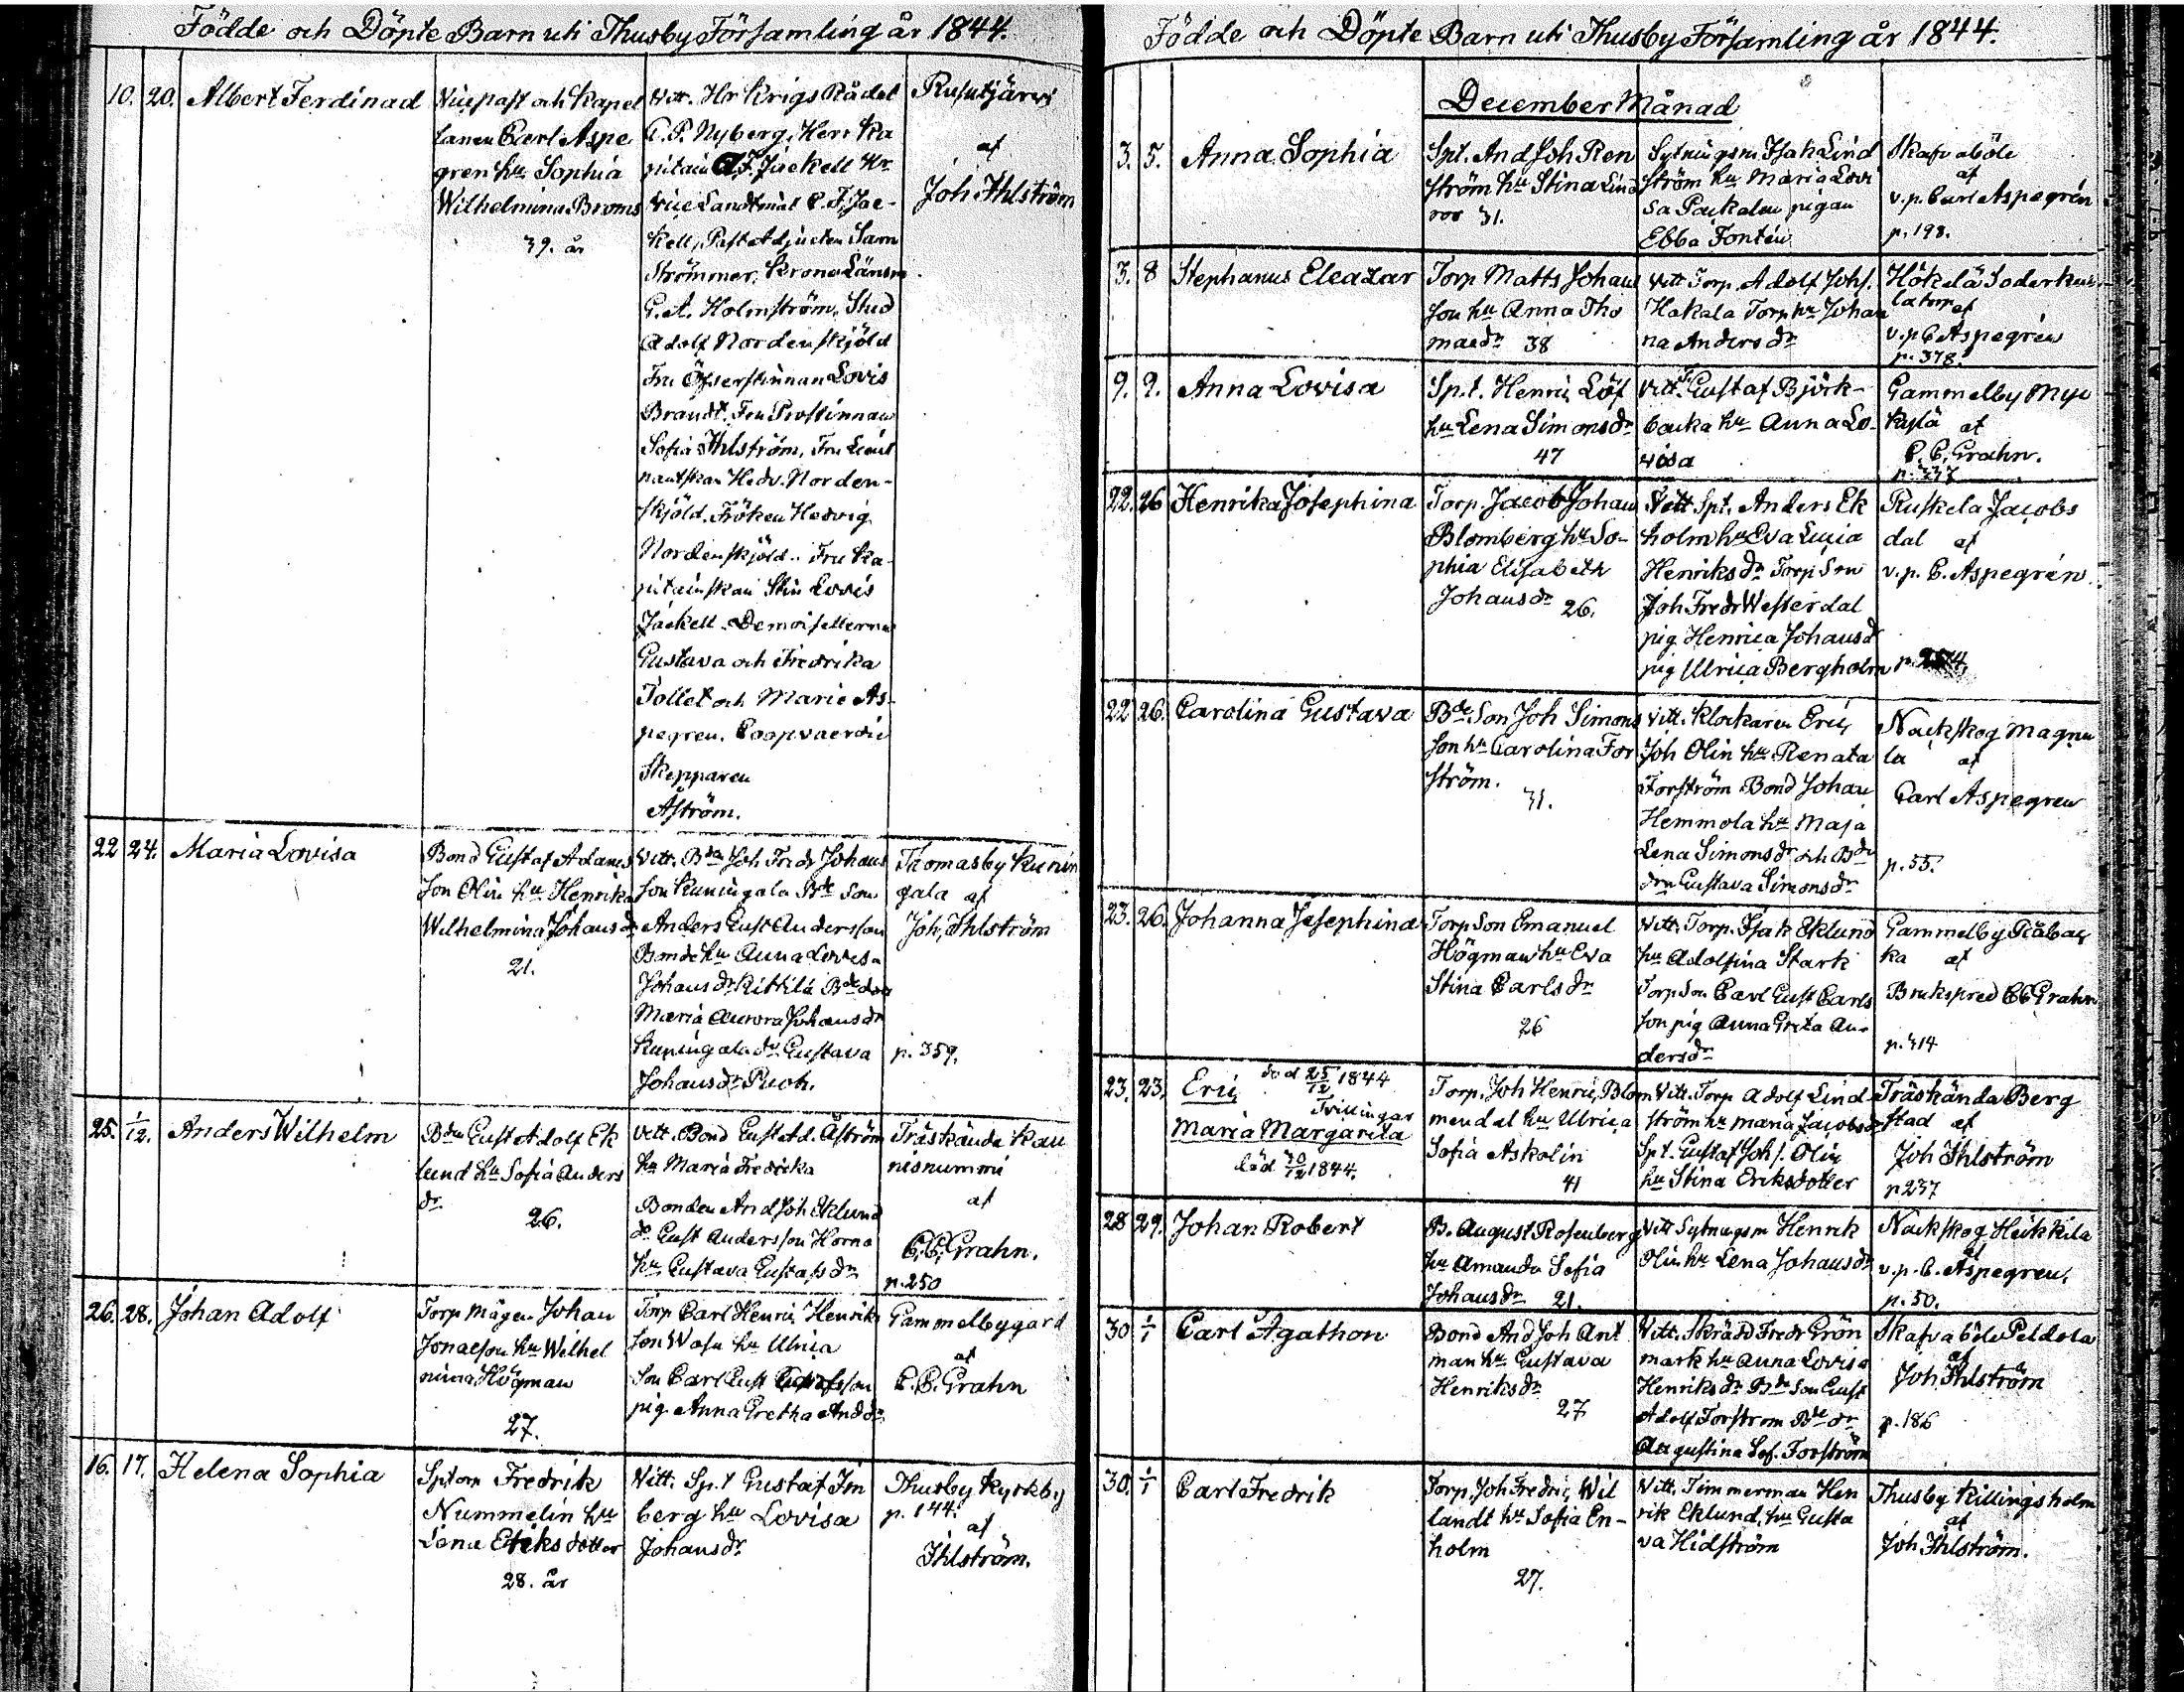 Födde och Döpte Barn uti Thusby Församling år 1844.
10. 20. Albert Ferdinad
Vicepast och Kapel
lanen Carl Aspe
gren hu Sophia
Wilhelmina Broms
39. år
Vitt. Hr Krigs Rådet
C. P. Nyberg, Herr Ka
pitain A. F. Jäckell Hr
Vice Landtmät C. F. Jae-
kell, Past Adjucten Sam
Strömmer, Krono Länsm
G. A. Holmström, Stud
Adolf Nordenskjöld
Fru Öfverstinnan Lovis
Brandt, Fru Prostinnan
Sofia Ihlström, Fru Lieut
nantskan Hedv. Norden-
skjöld. Fröken Hedvig
Nordenskjöld. Fru Ka
pitainskan Stin Lovis
Jäckell. Demoisellerna
Gustava och Fredrika
Tollet och Marie As-
pegren. Coopvaerdie
Skepparen
Åström.
Rusutjärvi
af
Joh Ihlström
22 24. Maria Lovisa
Bond Gustaf Adams
son Olin hu Henrika
Wilhelmina Johansdr
21.
Vitt. Bdn Joh. Fredr Johans
son Kuningala Bde Son
Anders Gust Andersson
Bonde hu Anna Lovisa
Johans dr Kittilä Bde dr
Maria Aurora Johans dr
Kuningala dr Gustava
Johans dr Puoh.
Thomasby Kunin
gala af
Joh, Ihlström
p. 359.
25. 1/12. Anders Wilhelm
Bdn Gust Adolf Ek
lund hu Sofia Anders
dr
26.
Vitt. Bond Gust Ad. Åström
hu Maria Fredrika
Bonden And Joh Eklund
do Gust Andersson Horna
hu Gustava Gustafs dr
Träskända Kau
nisnummi
af
C. C. Grahn.
p. 250
26. 28. Johan Adolf
Torp mågen Johan
Jonaeson hu Wilhel
mina Högman
27.
Torp Carl Henric Henriks
son Wasu hu Ulrica
Son Carl Gust Gustafsson
pig. Anna Gretha And dr
Gammelbygård
af
C. C. Grahn
16. 17. Helena Sophia
Sptorp Fredrik
Nummelin hu
Lena Eriksdotter
28. år
Vitt. Sp.t Gustaf Im
berg hu Lovisa
Johans dr
Thusby Kyrkby
p. 144.
af
Ihlström.
Födde och Döpte Barn uti Thusby Församling år 1844.
December Månad
3. 5. Anna Sophia
Spt. And Joh Ren
ström hu Stina Lind
roo 31.
Sytningsm Isak Lind
ström hu Maria Lovi
sa Packalen pigan
Ebba Fontén
Skafvaböle
af
v. p. Carl Aspegrén
p. 198.
3. 8 Stephanus Eleazar
Torp Matts Johans
son hu Anna Tho
mae dr 38
Vitt Torp. Adolf Johs.
Hakala Torp hu Johan
na Anders dr
Hökelä Soderkul
la torp af
v. p. C Aspegrén
p. 378.
9. 9. Anna Lovisa
Sp.t. Henric Löf
hu Lena Simonsdr
47
Vitt. Gustaf Björk-
backa hu Anna Lo-
visa
Gammelby Myl
kylä af
C. C. Grahn.
p. 337
22. 26 Henrika Josephina
Torp. Jacob Johan
Blomberg hu So-
phia Elisabeth
Johans dr 26.
Vitt Spt. Anders Ek
holm hu Eva Lucia
Henriks dr Torp Son
Joh Fredr Westerdal
pig Henrica Johansd
pig Ulrica Bergholm
Ruskela Jacobs
dal af
v. p. C. Aspegrén
22 26. Carolina Gustava
Bde Son Joh Simons
son hu Carolina For
ström.
31.
Vitt. Klockaren Eric
Joh Olin hu Renata
Forström Bond Johan
Hemmola hu Maja
Lena Simons dr och Bde
drn Gustava Simons dr
Nackskog Magnu
la af
Carl Aspegren
p. 55.
23. 26. Johanna Josephina
Torp Son Emanuel
Högman hu Eva
Stina Carls dr
26
Vitt. Torp. Isak Eklund
hu Adolfina Stark
Torp Son Carl Gust Carls
son pig Anna Greta An-
ders dr
Gammelby Råbac
ka af
Brukspred CC Grahn
p. 414
23. 23. Eric död 25/12 1844
Tvillingar
Maria Margarita
död 30/12 1844.
Torp. Joh Henric Blom
mendal hu Ulrica
Sofia Askolin
41
Vitt. Torp Adolf Lind
ström hu Maria Jacobsdr
Spt. Gustaf Johs. Olin
hu Stina Eriksdotter
Träskända Berg
stad af
Joh Ihlström
p 237
28 29. Johan Robert
B. August Rosenberg
hu Amanda Sofia
Johans dr 21.
Vitt Sytnugsm Henrik
Olin hu Lena Johans dr
Nackskog Heikkila
af
v. p. C. Aspegren,
p. 50.
30 1/1 Carl Agathon
Bond And Joh Ant
man hu Gustava
Henriks dr
27
Vitt. Skrädd Fredr Grön
mark hu Anna Lovisa
Henriks dr Bde Son Gust
Adolf Forstrom Bde dr
Augustina Sof. Forström
Skafvaböle Peldola
af
Joh, Ihlström
p. 186
30. 1/1 Carl Fredrik
Torp. Joh Fredric Wil
landt hu Sofia En-
holm
27.
Vitt. Timmerman Hen
rik Eklund, hu Gusta
va Hidström
Thusby Killingsholm
af
Joh Ihlström.